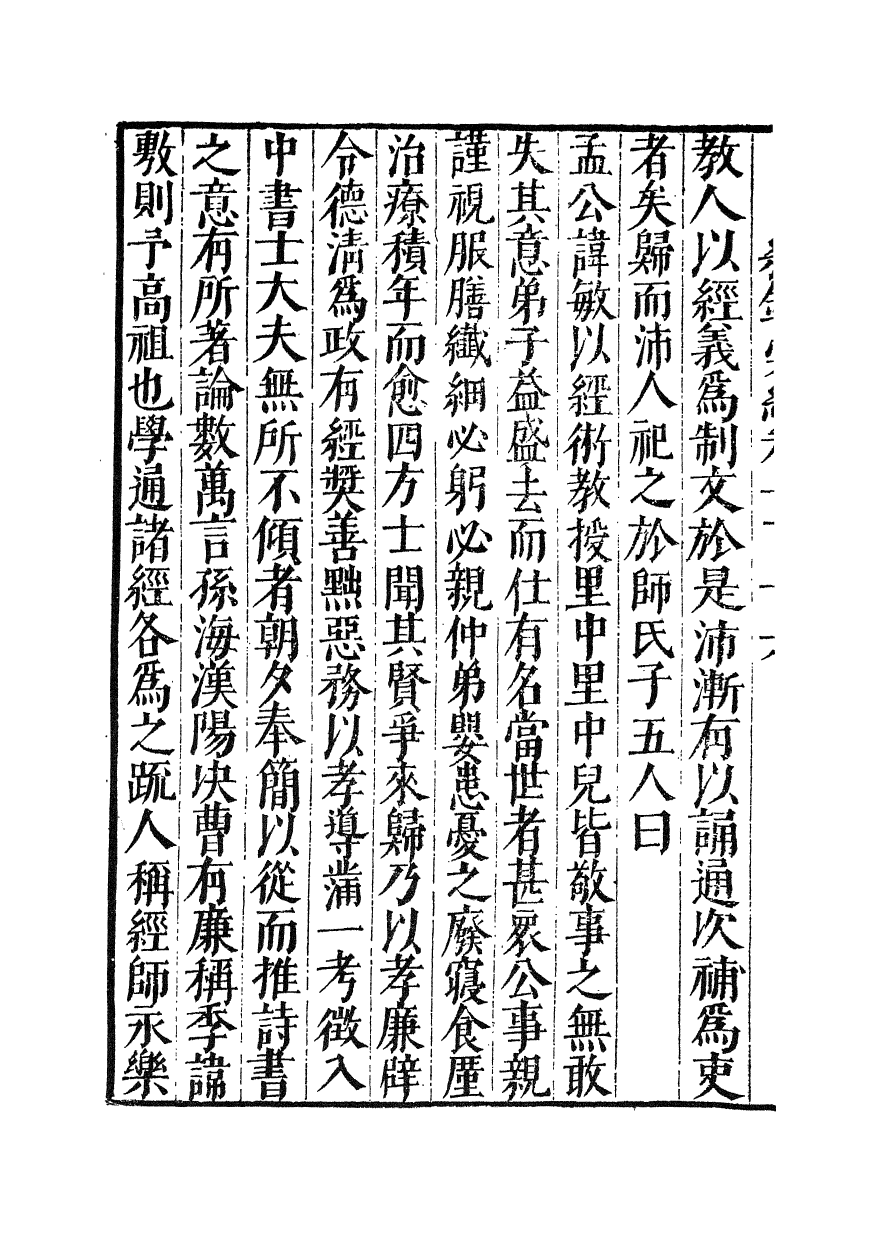 教人以經義爲制文於是沛漸有以誦通次補爲吏
者矣歸而沛人祀之於師氏子五人曰
孟公諱敏以經術教授里中里中兒皆敬事之無敢
失其意弟子益盛去而仕有名當世者甚衆公事親
謹視服膳纖細必躬必親仲弟嬰患憂之廢寢食厪
治療積年而愈四方士聞其賢爭來歸乃以孝廉辟
令德清爲政有經奬善黜惡務以孝導滿一考徵入
中書士大夫無所不傾者朝夕奉簡以從而推詩書
之意有所著論數萬言孫海漢陽决曹有廉稱季諱
敷則予高祖也學通諸經各爲之疏人稱經師永樂